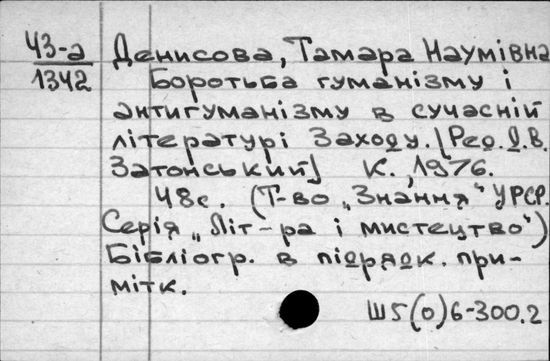 Ч3-а
1342
Денисова, Тамара Наумівна
Боротьба гуманізму і
антигуманізму в сучасній
літературі Заходу. [Ред. Д.В.
Затонський] К., 1976.
48с. (Т-во „Знання" УРСР.
Серія „Літ-ра і мистецтво")
Бібліогр. в підрядк. при-
мітк.
Ш5(0)6-300.2